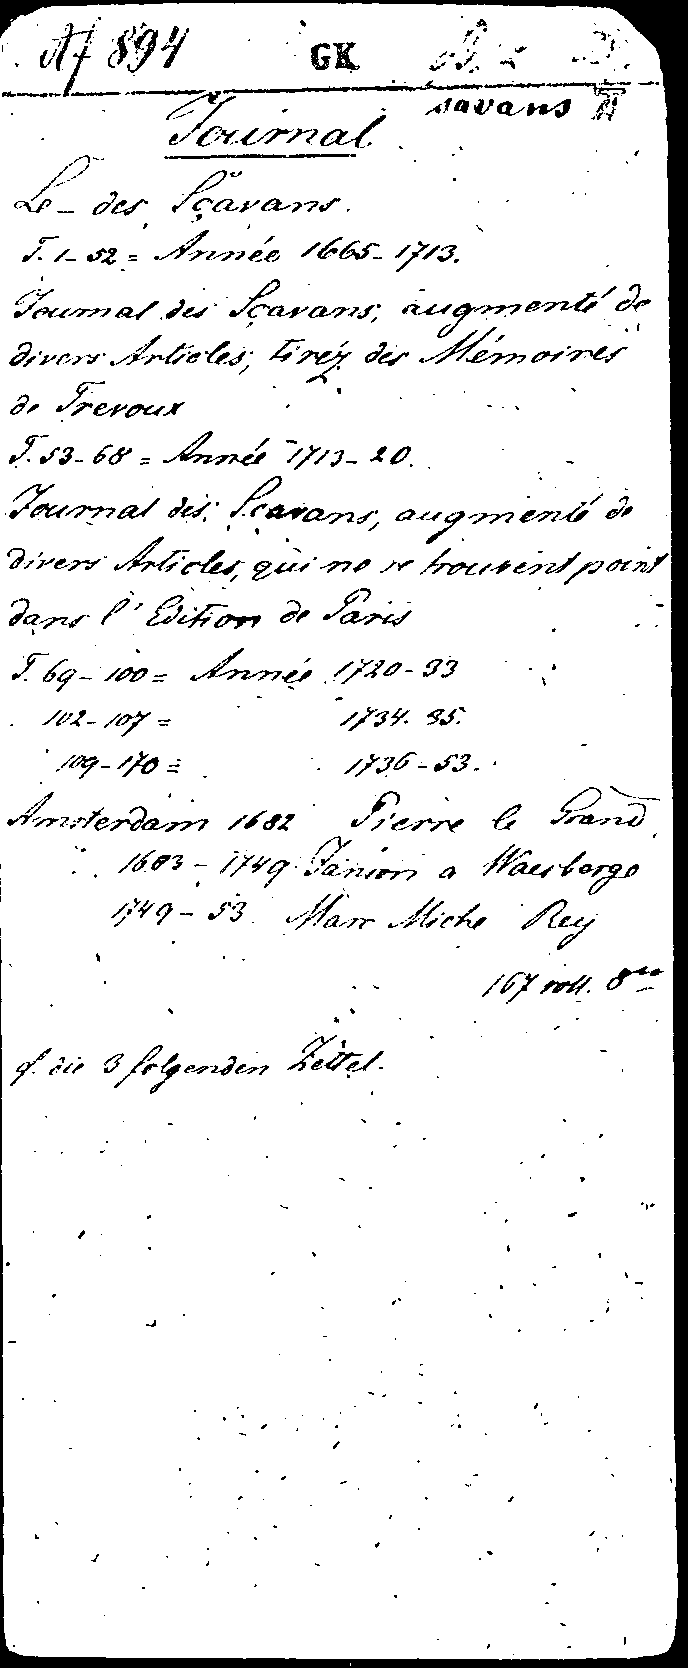 Af 894 GK
savans II
Journal
Le - des Sçavans.
T. 1-52 = Année 1665-1713.
Journal des Sçavans, augmenté de
divers Articles, tiréz des Mémoires
de Trevoux
T. 53-68 = Année 1713-20.
Journal des Scavans, augmenté de
divers Articles, qui ne se trouvent point
dans l'Edition de Paris
T. 69-100 = Année 1720-33
102-107 = 1734-35.
109-170 = 1736-53.
Amsterdam 1682 Pierre le Grand
1683-1749 Janson a Waesberge
1749-53 Marc Miche Rey
167 voll. 8vo
cf. die 3 folgenden Zettel.